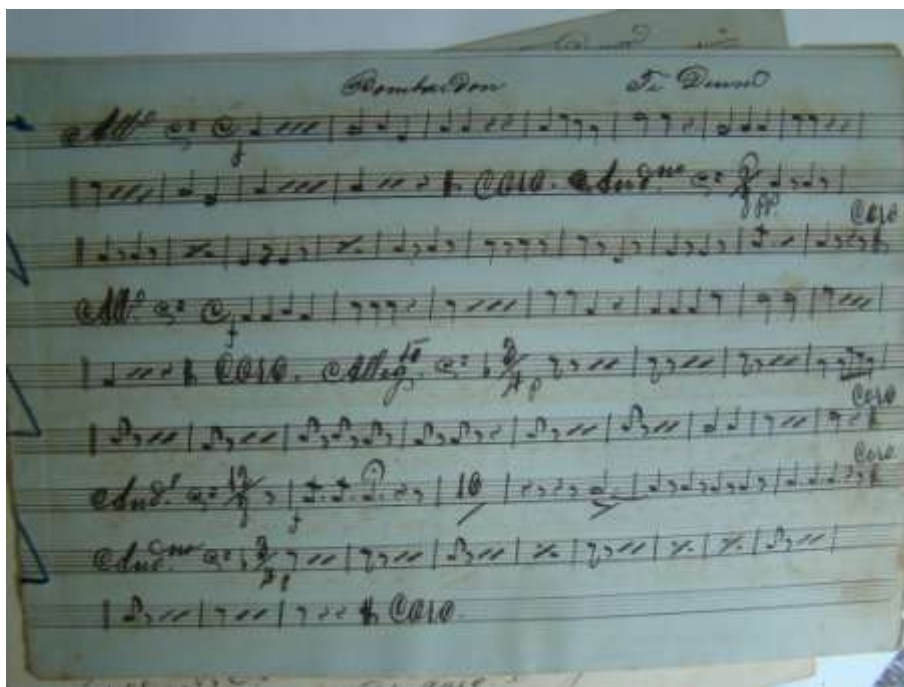 Bombardon Te Deum
All.º C f
Coro. And.no pp.
Coro
All.º C f
Coro. Alleg.to p
Coro
Coro
And.e 12/8 f 10
And.no p
Coro.